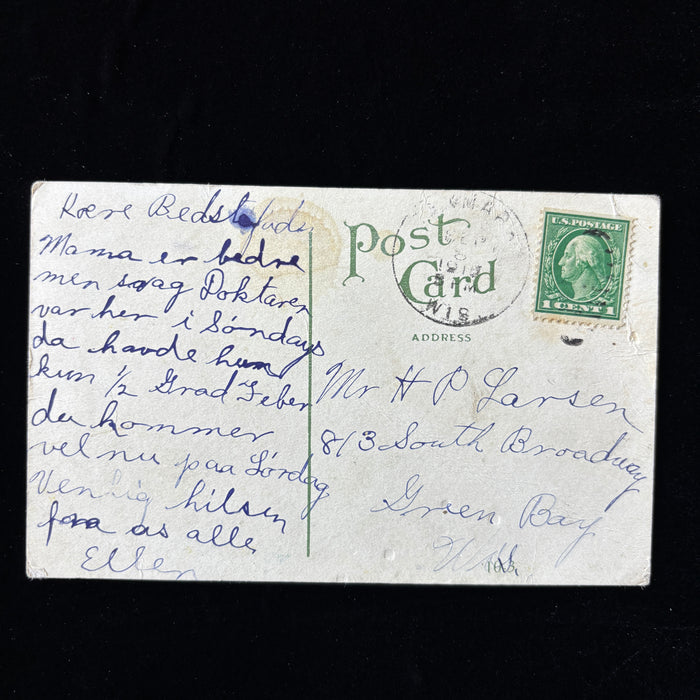 Kære Bedstefade
Mama er bedre
men svag Doktaren
var her i Søndags
da havde hun
kun 1/2 Grad Feber
du kommer
vel nu paa Lørdag
Venlig hilsen
fra os alle
Ellen
Post
Card
ADDRESS
U.S. POSTAGE
1 CENT 1
WIS
Mr H P Larsen
813 South Broadway
Green Bay
Wis.